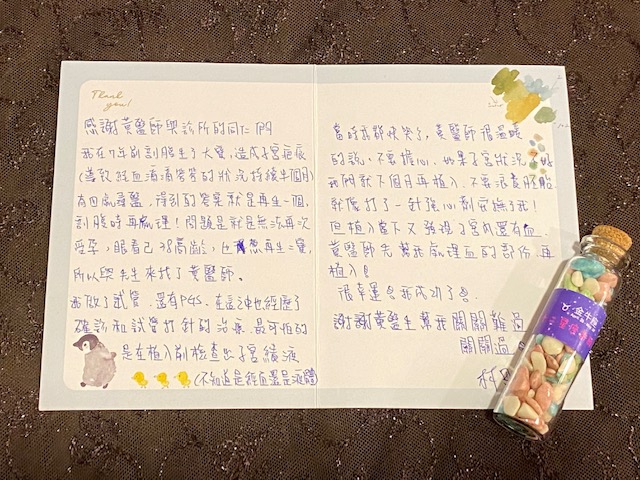 Thank you!
感謝黃醫師與診所的同仁們
我在7年前剖腹生了大寶,造成子宮疤痕
(導致經血滴滴答答的狀況持續半個月)
有四處尋醫,得到的答案就是再生一個,
剖腹時再處理!問題是就是無法再次
受孕,眼看已邁高齡,也想再生二寶,
所以與先生來找了黃醫師。
我做了試管,還有PGS,在這神也經歷了
確診和試管打針的治療,最可怕的
是在植入前檢查出子宮積液
(不知道是經血還是液體)
當時我都快哭了,黃醫師很溫暖
的說,不要擔心,如果子宮狀況
我們就下個月再植入,不要浪費胚胎
就像打了一針強心劑安撫了我!
但植入當下又發現了宮內還有血,
黃醫師先幫我處理血的部份,再
植入!
很幸運的我成功了!
謝謝黃醫生幫我關關難過
關關過。
金牛座